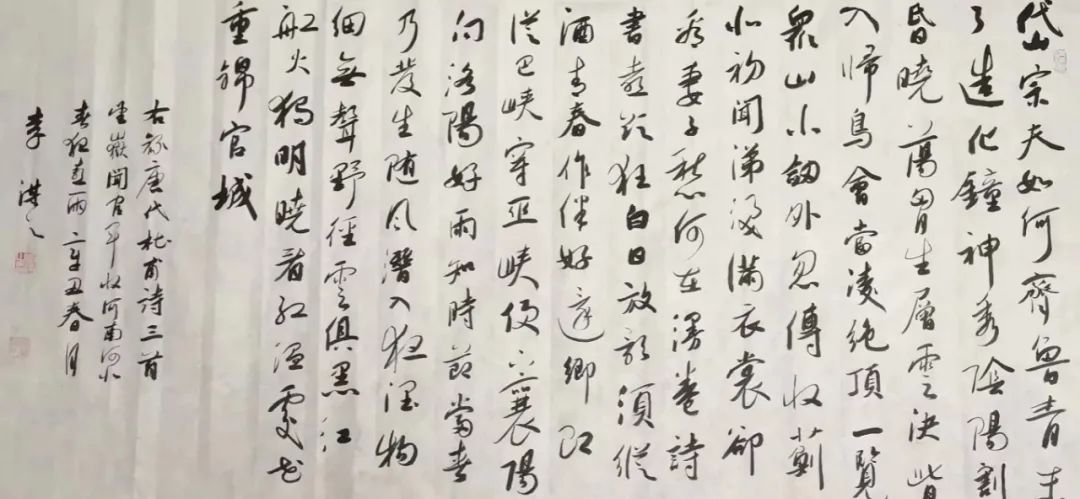 岱宗夫如何齊魯青未
了造化鐘神秀陰陽割
昏曉蕩胸生層雲決眥
入歸鳥會當凌絕頂一覽
衆山小劍外忽傳收薊
北初聞涕淚滿衣裳卻
看妻子愁何在漫卷詩
書喜欲狂白日放歌須縱
酒青春作伴好還鄉即
從巴峽穿巫峽便下襄陽
向洛陽好雨知時節當春
乃發生随風潛入夜潤物
細無聲野徑雲俱黑江
船火獨明曉看紅濕處花
重錦官城
右錄唐代杜甫詩三首
望嶽聞官軍收河南河北
春夜喜雨辛丑春月
李